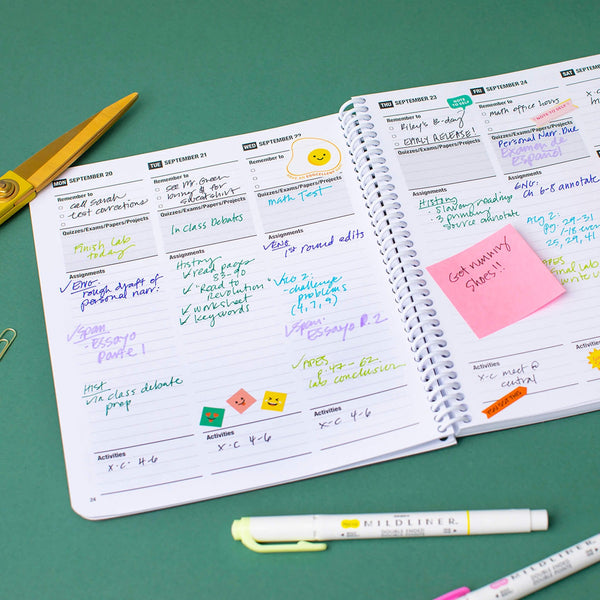 MON SEPTEMBER 20
Remember to
call Sarah
test corrections
Quizzes/Exams/Papers/Projects
Finish lab
today
Assignments
✓ Eng:
rough draft of
personal narr.
✓ Span:
Essayo
Parte 1
Hist
✓ in class debate
prep
Activities
x-c 4-6
24
TUE SEPTEMBER 21
Remember to
see Mr. Green
bring $ for
sweatshirt
Quizzes/Exams/Papers/Projects
In class Debates
Assignments
History
✓ read pages
83-90
✓ "Road to
Revolution"
✓ worksheet
✓ keywords
Activities
x-c 4-6
WED SEPTEMBER 22
Remember to
Quizzes/Exams/Papers/Projects
math Test
Assignments
✓ Eng:
1st round edits
✓ Alg 2:
challenge
problems
(4, 7, 9)
✓ Span:
Essayo P. 2
✓ APES
p. 47-62
lab conclusion
Activities
x-c 4-6
THU SEPTEMBER 23
NOTE TO SELF
Remember to
Riley's B-day
EARLY RELEASE!
Quizzes/Exams/Papers/Projects
Assignments
History
- slavery readings
- 2 primary
source annotate
Got running
shoes!!
Activities
x-c meet @
central
FRI SEPTEMBER 24
Remember to
math office hours
NOTE TO SELF
Quizzes/Exams/Papers/Projects
Personal Narr. Due
Examen de
Español
Assignments
ENG:
Ch. 6-8 annotate
Alg 2:
pg. 29-31
25, 29, 41
APES
Final lab
SAT SEPTEMBER
Remember
x-c
MILDLINER
DOUBLE ENDED
MILDLINER
DOUBLE ENDED